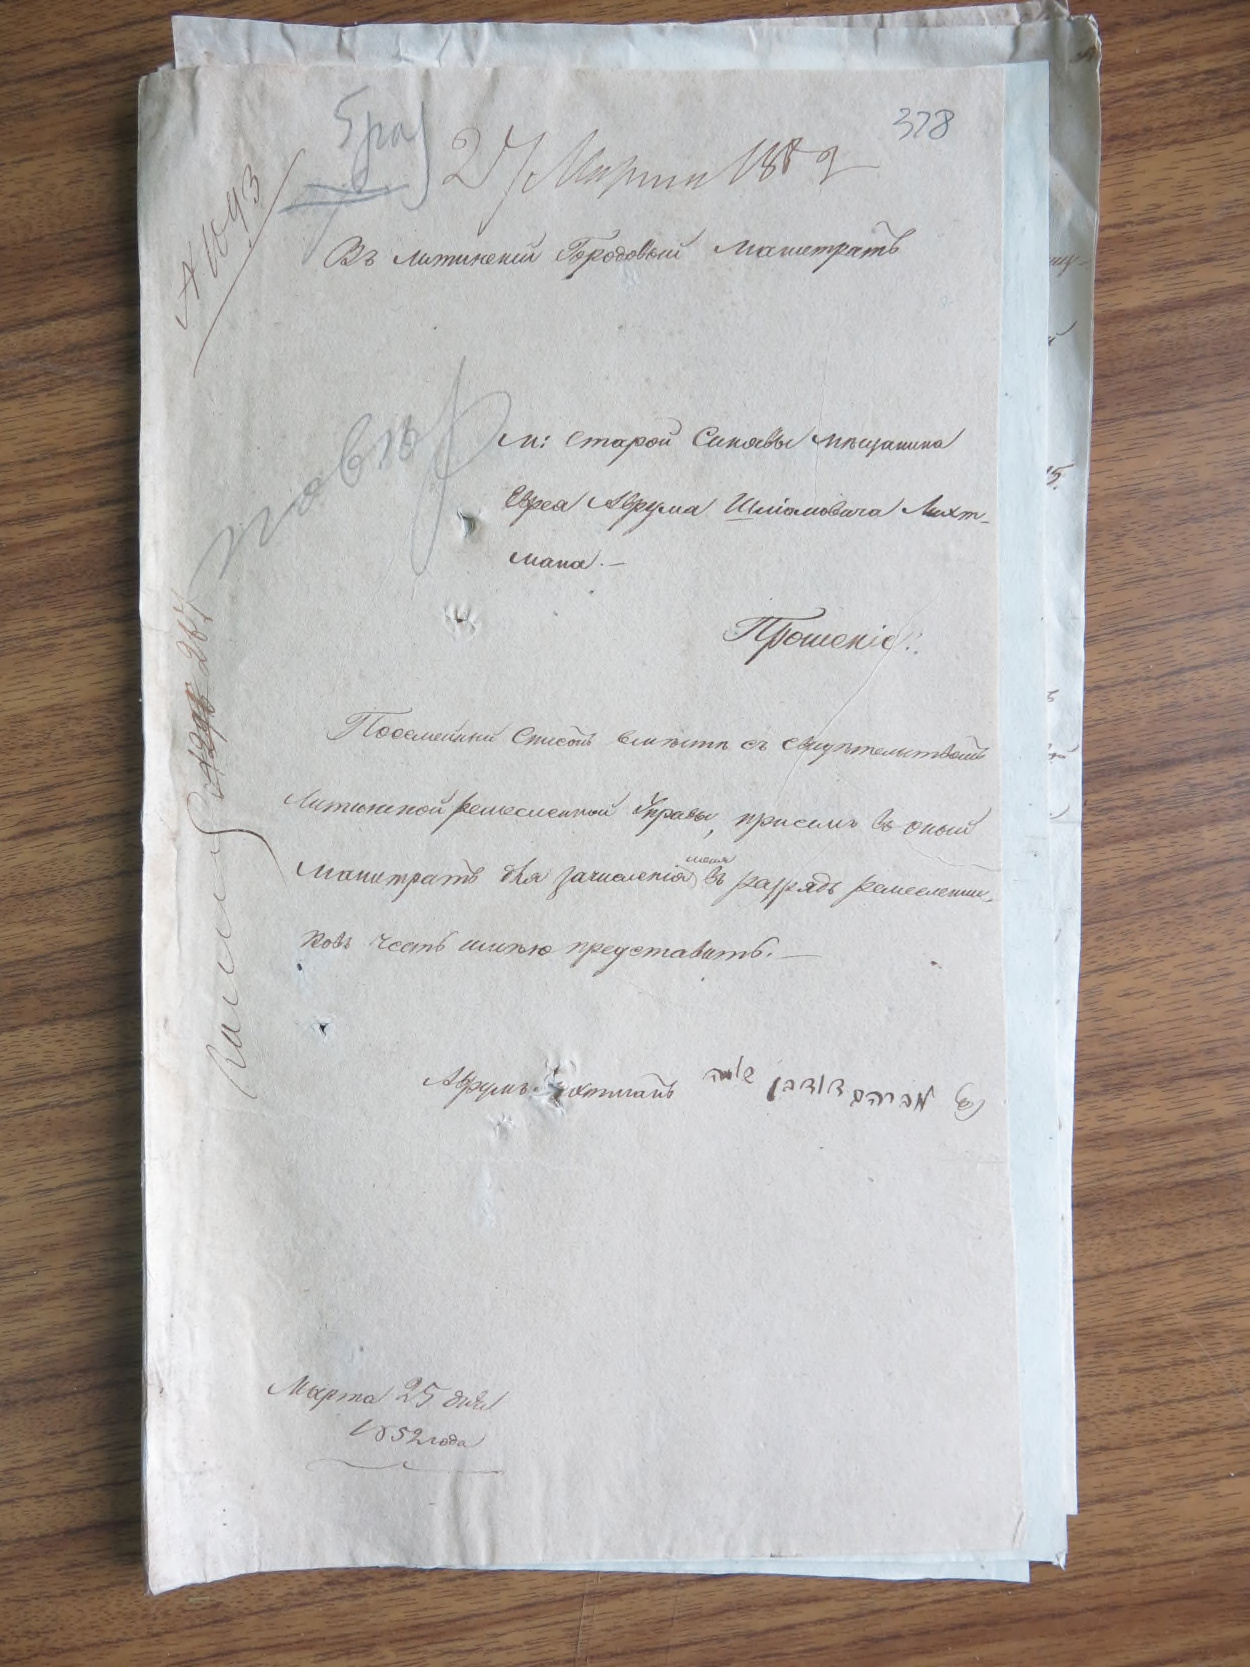 378
27 Марта 1852
№ 1093
Въ Литинскій Городовый Магистратъ
М: Старой Синявы мѣщанина
Еврея Аврума Шліомовича Лихт-
мана.—
Прошеніе:
Посемейный Списокъ вмѣстѣ съ свидѣтельствомъ
Литинской ремесленной Управы, при семъ въ оный
Магистратъ для зачисленія меня въ разрядъ ремесленни-
ковъ честь имѣю представить.—
Аврумъ Лихтманъ אברהם דוד בן שלמה
Марта 25 дня
1852 года